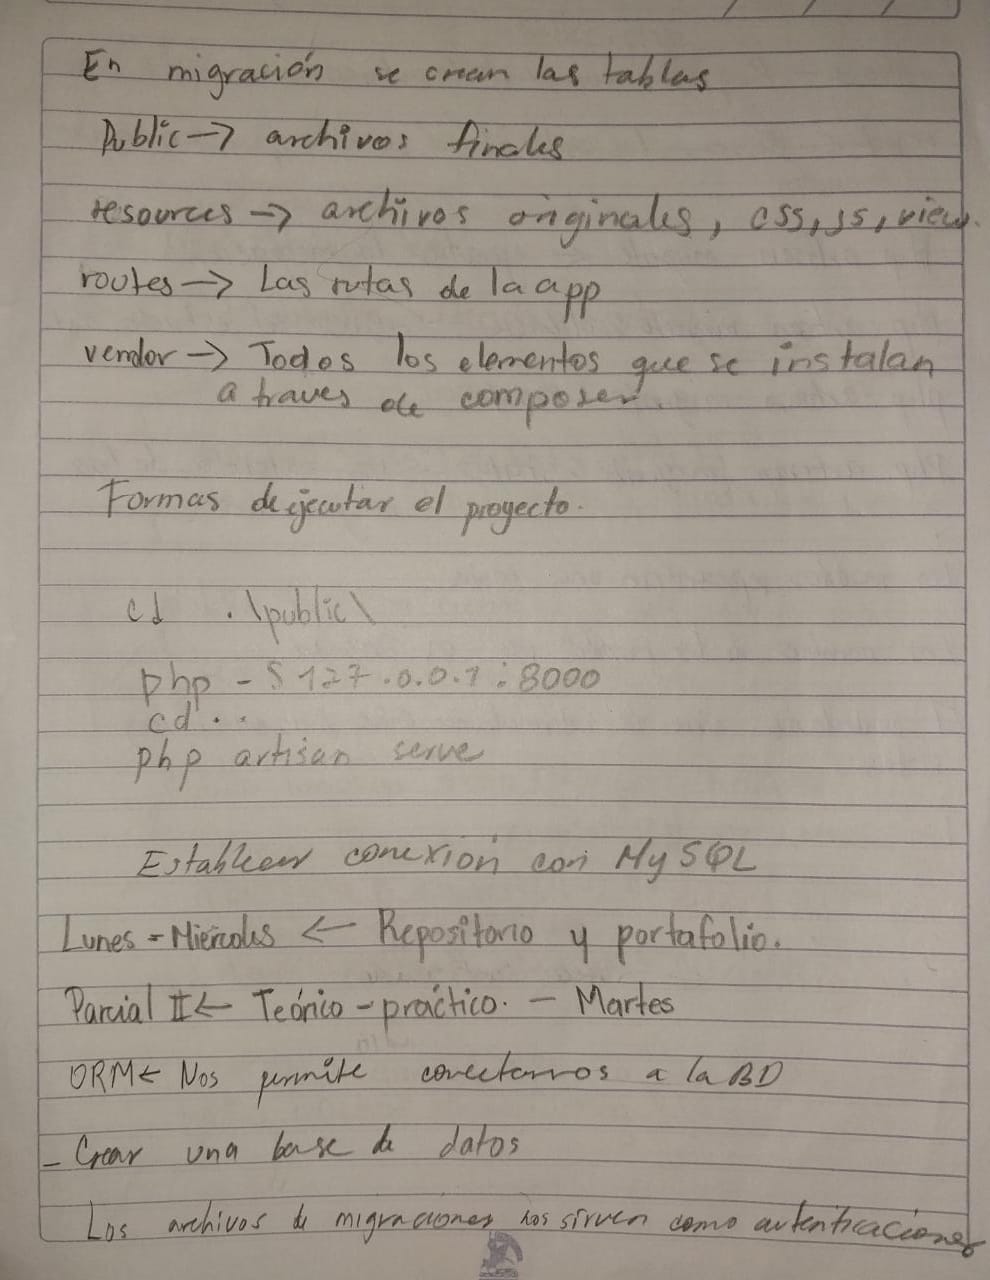 En migración se crean las tablas
Public → archivos finales
resources → archivos originales, css, js, view.
routes → Las rutas de la app
vendor → Todos los elementos que se instalan
a traves de composer.
Formas de ejecutar el proyecto.
cd .\public\
php -S 127.0.0.1:8000
cd..
php artisan serve
Establecer conexión con MySQL
Lunes - Miércoles ← Repositorio y portafolio.
Parcial II ← Teórico - práctico. - Martes
ORM ← Nos permite conectarnos a la BD
- Crear una base de datos
Los archivos de migraciones nos sirven como autenticaciones